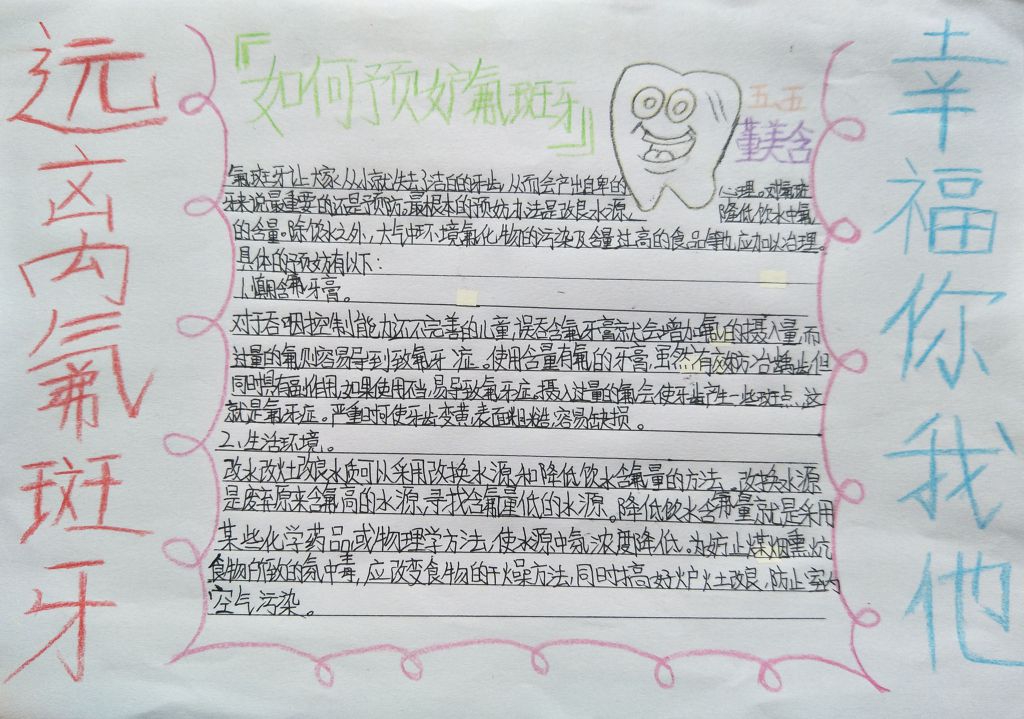 远离氟斑牙
『如何预妨氟斑牙』
五五
董美含
氟斑牙让大家从小就失去了洁白的牙齿,从而会产出自卑的心理。对氟斑
牙来说最重要的还是预防。最根本的预妨办法是改良水源,降低饮水中氟
的含量。除饮水之外,大气中环境氟化物的污染及含量过高的食品等也应加以治理。
具体的预妨有以下:
1、慎用含氟牙膏。
对于吞咽控制能力还不完善的儿童,误吞含氟牙膏就会增加氟的摄入量,而
过量的氟则容易导到致氟牙症。使用含量有氟的牙膏,虽然有效防治龋齿,但
同时拥有副作用,如果使用不当,易导致氟牙症。摄入过量的氟会使牙齿产生一些斑点,这
就是氟牙症。严重时可使牙齿变黄,表面粗糙,容易缺损。
2、生活环境。
改水改灶改良水质可以采用改换水源和降低饮水含氟量的方法。改换水源
是废弃原来含氟高的水源,寻找含氟量低的水源。降低饮水含氟量就是采用
某些化学药品或物理学方法,使水源中氟浓度降低。为妨止煤烟熏炕
食物所致的氟中毒,应改变食物的干燥方法,同时搞好炉火土改良,防止室内
空气污染。
幸福你我他